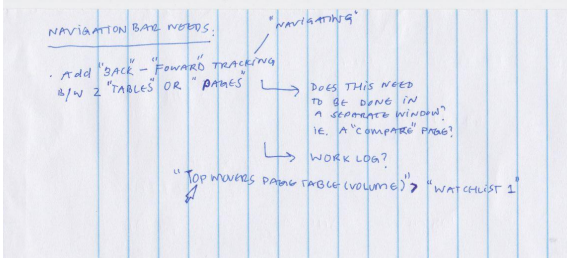 NAVIGATION BAR NEEDS:
"NAVIGATING"
· Add "BACK" - "FOWARD" TRACKING
B/W 2 "TABLES" OR "PAGES"
→ DOES THIS NEED
TO BE DONE IN
A SEPARATE WINDOW?
IE. A "COMPARE" PAGE?
→ WORK LOG?
"TOP MOVERS PAGE TABLE (VOLUME)" > "WATCHLIST 1"